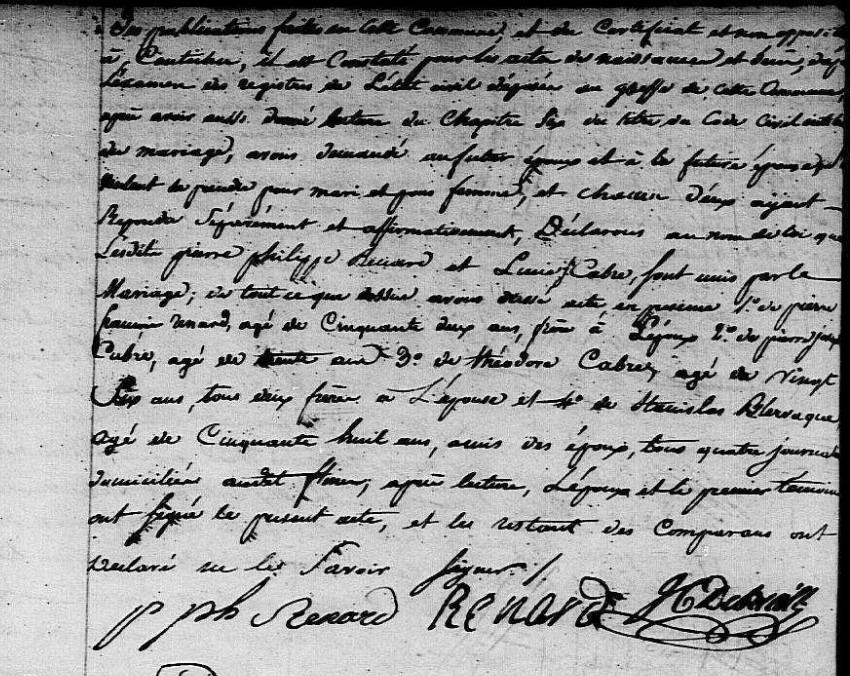 des publications faites en cette Commune, et du Certificat et non opposition
à, il est Constaté pour les actes de naissances et décès, d'après
L'examen des registres de L'état civil déposés au greffe de cette Commune,
après avoir aussi donné lecture du Chapitre Six du titre du Code Civil intitulé
du mariage, avons demandé au futur époux et à la future épouse s'ils
veulent se prendre pour mari et pour femme, et chacun d'eux ayant
Repondu Séparément et affirmativement, Déclarons au nom de loi que
Lesdits pierre philippe Renard et Cabre, sont unis par le
Mariage; de tout ce que dessus avons dressé acte en présence 1º. de pierre
francois renard, agé de Cinquante deux ans, frère à L'époux 2º. de pierre joseph
Cabre, agé de trente ans 3º. de théodore Cabre, agé de vingt
Six ans, tous deux frères à L'épouse et 4º de Stanislas Blervaque,
agé de Cinquante huit ans, amis des époux, tous quatre journaliers
domiciliés audit, après lecture, L'époux et le premier temoin
ont signé le présent acte, et les restant des Comparans ont
Déclaré ne le Savoir signer ./
p ph Renard RENARD